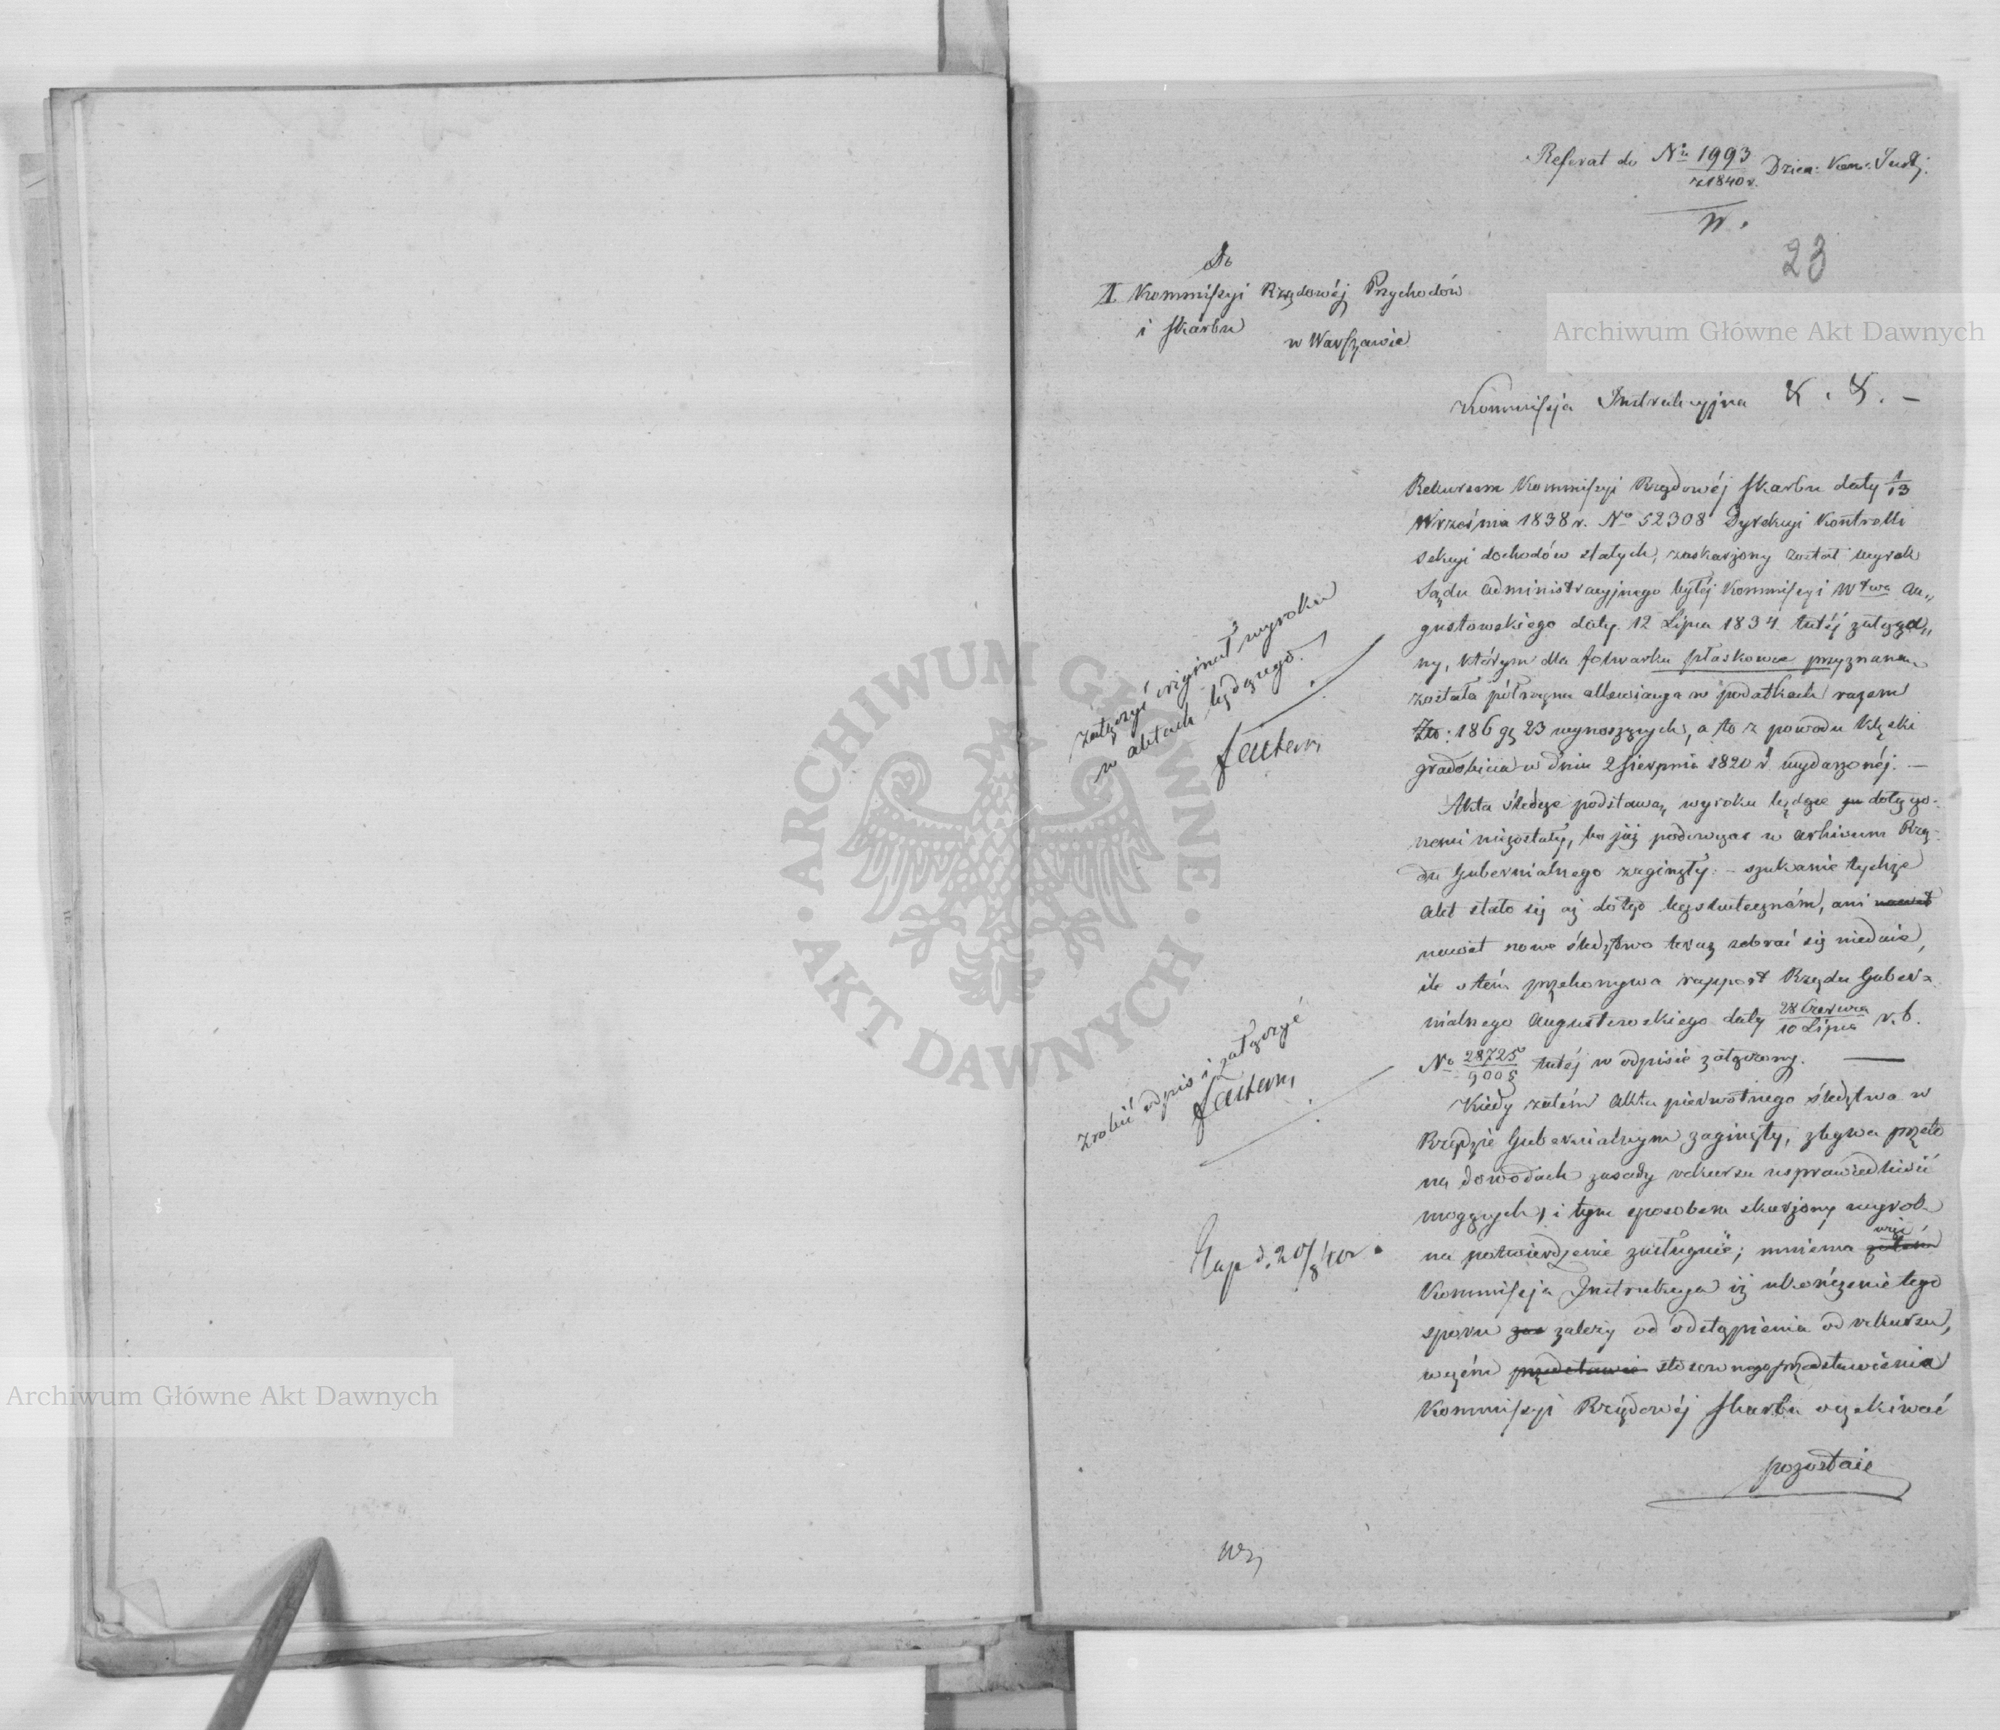 Referat do Nru 1993 z 1840 r. Dzien: Kom: Instr:
23
Do
Kommissyi Rządowéj Przychodów
i Skarbu
w Warszawie
Kommissja Instrukcyjna
Rekursem Kommissyi Rządowéj Skarbu daty 1/13
Września 1838 r. No 52308 Dyrekcyi Kontrolli
Sekcyi dochodów stałych, zaskarżony został wyrok
Sądu Administracyjnego byłéj Kommissyi Wtwa Au„
gustowskiego daty 12 Lipca 1834 tutéj załącza„
ny, którym dla folwarku Płaskowce przyznana
została półroczna allewiacya w podatkach razem
Złp: 186 gr 23 wynoszących, a to z powodu klęski
gradobicia w dniu 2 Sierpnia 1820 r wydarzonéj. —
Akta śledcze podstawą wyroku będące dołączo-
nemi niezostały, bo już podówczas w archiwum Rzą-
du Gubernialnego zaginęły. – szukanie tychże
Akt stało się aż dotąd bezskuteczném, ani nawet
nawet nowe śledztwo teraz zebrać się niedaie,
ile o tém przekonywa rapport Rządu Guber-
nialnego Augustowskiego daty 28 Czerwca/10 Lipca r. b.
No 28725/9005 tutéj w odpisie załączony. —
Kiedy zatém Akta pierwotnego śledztwa w
Rządzie Gubernialnym zaginęły, zbywa przeto
na dowodach zasady rekursu usprawiedliwić
mogących, i tym sposobem skarżony wyrok
na potwierdzenie zasługuie; mniema zatém
Kommissja Instrukcyjna iż ukończenie tego
sporu zależy od odstąpienia od rekursu,
w czém przedstawie stosownego przedstawienia
Kommissyi Rządowéj Skarbu oczekiwać
pozostaie
załączyć oryginał wyroku
w aktach będącego.
zrobić odpis i załączyć
Exp d. 20/8 40 r.
Archiwum Główne Akt Dawnych
Archiwum Główne Akt Dawnych
ARCHIWUM GŁÓWNE · AKT DAWNYCH ·